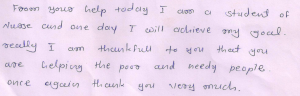 From your help today I am a student of
Nurse and one day I will achieve my goal.
really I am thankfull to you that you
are helping the poor and needy people
once again thank you very much.